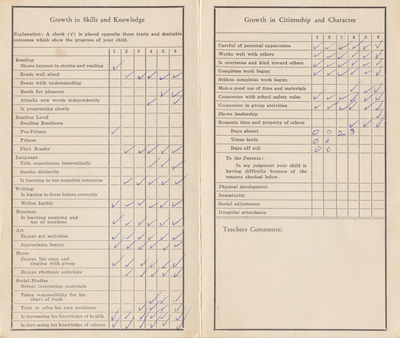 Growth in Skills and Knowledge
Explanation: A check (✓) is placed opposite those traits and desirable
outcomes which show the progress of your child.
1 2 3 4 5 6
Reading
Shows interest in stories and reading ✓
Reads well aloud ✓ ✓ ✓ ✓ ✓
Reads with understanding
Reads for pleasure ✓ ✓
Attacks new words independently ✓ ✓
Is progressing slowly
Reading Level
Reading Readiness
Pre-Primer ✓
Primer
First Reader ✓ ✓ ✓ ✓ ✓
Language
Tells experiences interestingly ✓ ✓ ✓
Speaks distinctly
Is learning to use complete sentences ✓ ✓ ✓ ✓ ✓
Writing
Is learning to form letters correctly
Writes legibly ✓ ✓ ✓ ✓ ✓ ✓
Numbers
Is learning meaning and
use of numbers ✓ ✓ ✓ ✓ ✓ ✓
Art
Enjoys art activities ✓ ✓ ✓ ✓ ✓ ✓
Appreciates beauty ✓ ✓ ✓ ✓ ✓ ✓
Music
Enjoys listening and
singing with group ✓ ✓ ✓ ✓ ✓ ✓
Enjoys rhythmic activities ✓ ✓ ✓ ✓ ✓
Social Studies
Brings interesting materials
Takes responsibility for his
share of work ✓ ✓ ✓
Tries to solve his own problems ✓ ✓ ✓
Is increasing his knowledge of health ✓ ✓ ✓ ✓ ✓ ✓
Is increasing his knowledge of science ✓ ✓ ✓ ✓ ✓ ✓
Growth in Citizenship and Character
1 2 3 4 5 6
Careful of personal appearance ✓ ✓ ✓ ✓ ✓ ✓
Works well with others ✓ ✓ ✓ ✓ ✓ ✓
Is courteous and kind toward others ✓ ✓ ✓ ✓ ✓ ✓
Completes work begun ✓ ✓ ✓ ✓ ✓ ✓
Seldom completes work begun
Makes good use of time and materials ✓ ✓ ✓
Cooperates with school safety rules ✓ ✓ ✓ ✓ ✓ ✓
Cooperates in group activities ✓ ✓ ✓ ✓ ✓ ✓
Shows leadership ✓
Respects time and property of others ✓ ✓ ✓
Days absent 0 3
Times tardy 0 0
Days off roll 0 0
To the Parents:
In my judgment your child is
having difficulty because of the
reasons checked below.
Physical development
Immaturity
Social adjustment
Irregular attendance
Teachers Comments: